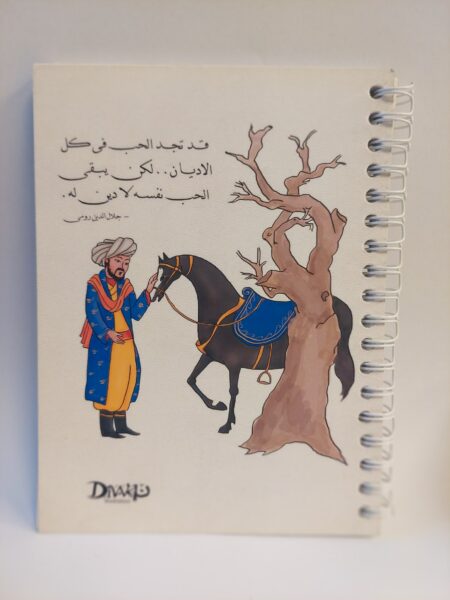 قد تجد الحب في كل
الاديان..لكن يبقى
الحب نفسه لا دين له.
- جلال الدين رومي